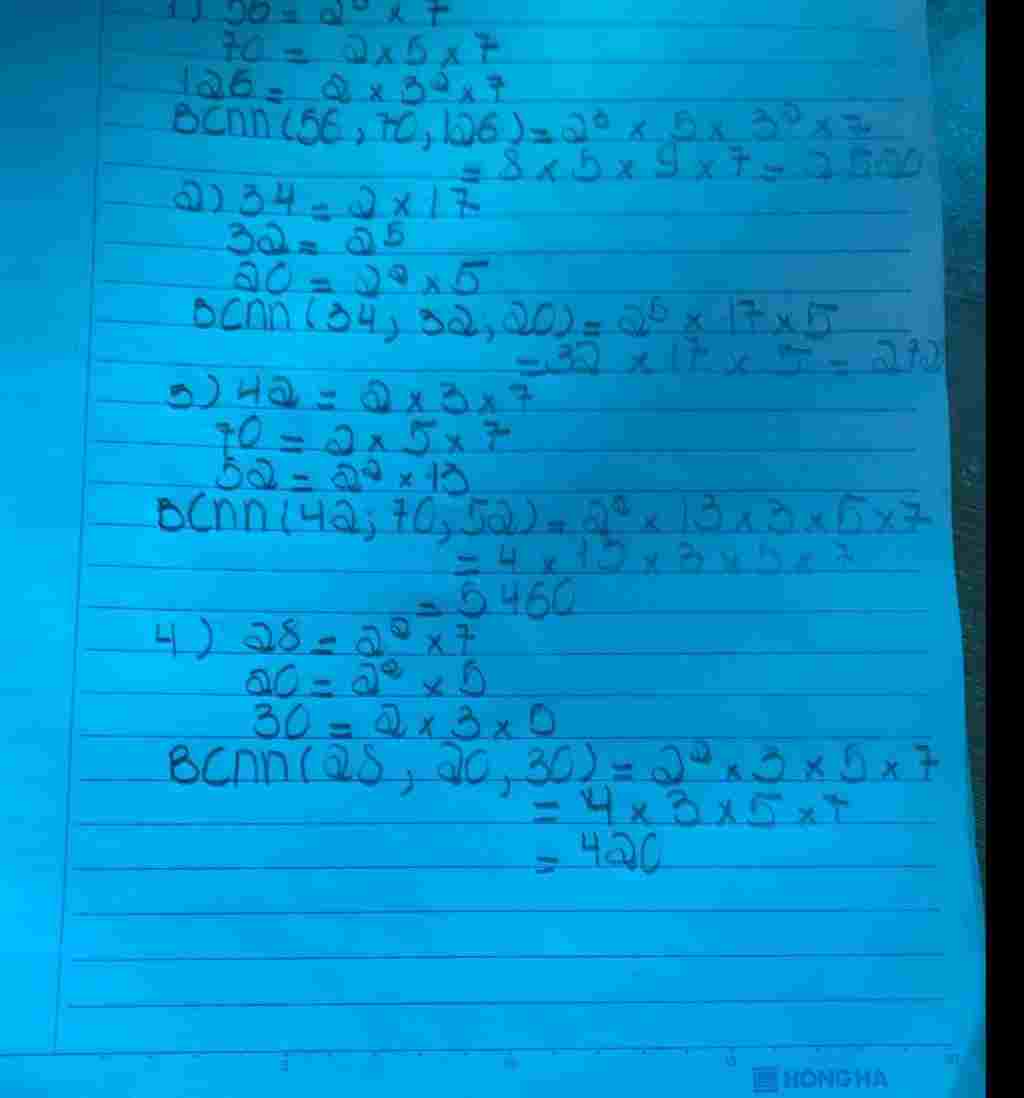 1) 56 = 2³ × 7
70 = 2 × 5 × 7
126 = 2 × 3² × 7
BCNN(56, 70, 126) = 2³ × 5 × 3² × 7
= 8 × 5 × 9 × 7 = 2520
2) 34 = 2 × 17
32 = 2⁵
20 = 2² × 5
BCNN(34, 32, 20) = 2⁵ × 17 × 5
= 32 × 17 × 5 = 272
3) 42 = 2 × 3 × 7
70 = 2 × 5 × 7
52 = 2² × 13
BCNN(42, 70, 52) = 2² × 13 × 3 × 5 × 7
= 4 × 13 × 3 × 5 × 7
= 5460
4) 28 = 2² × 7
20 = 2² × 5
30 = 2 × 3 × 5
BCNN(28, 20, 30) = 2² × 3 × 5 × 7
= 4 × 3 × 5 × 7
= 420
HONG HA